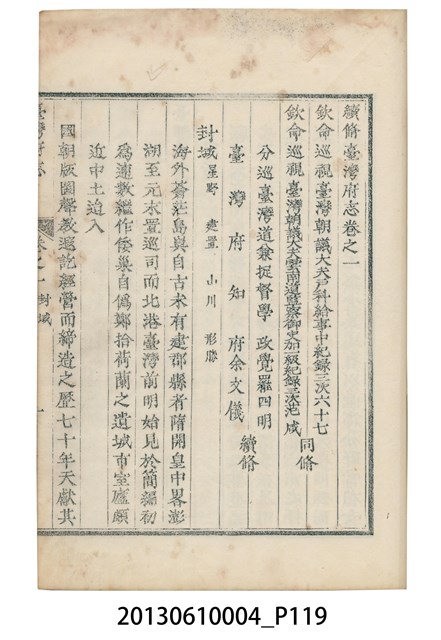 續修臺灣府志卷之一
欽命巡視臺灣朝議大夫戶科給事中紀錄三次六十七
欽命巡視臺灣朝議大夫雲南道監察御史加一級紀錄三次范咸
同修
分巡臺灣道兼提督學政覺羅四明
臺灣府知府余文儀
續修
封域 星野 建置 山川 形勝
海外蒼茫島與自古未有建郡縣者隋開皇中畧澎
湖至元末置巡司而北港臺灣前明始見於簡編初
為逋藪繼作倭巢自偽鄭拾荷蘭之遺城市室廬頗
近中土迨入
國朝版圖聲教遐訖經營而締造之歷七十年天獻其
臺灣府志
卷之一 封域
一
20130610004_P119